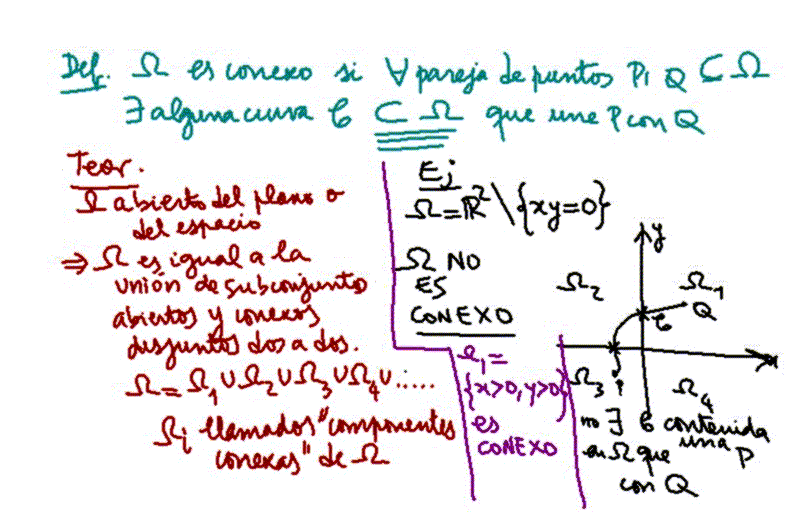 Def. Ω es conexo si ∀ pareja de puntos P, Q ⊂ Ω
∃ alguna curva C ⊂ Ω que une P con Q
Teor.
Ω abierto del plano o
del espacio
⇒ Ω es igual a la
unión de subconjunto
abiertos y conexos
disjuntos dos a dos.
Ω = Ω1 ∪ Ω2 ∪ Ω3 ∪ Ω4 ∪ .....
Ωi llamados "componentes
conexas" de Ω
Ej
Ω = R² \ {xy=0}
Ω NO
ES
CONEXO
Ω1 =
{x>0, y>0}
es
CONEXO
y
Ω2
Ω1
C
Q
x
Ω3
P
Ω4
no ∃ C contenida
en Ω que una P
con Q